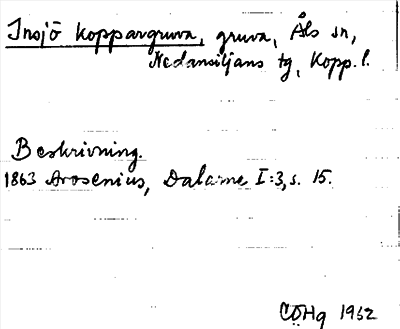 Insjö koppargruva, gruva, Åls sn,
Nedansiljans tg, Kopp. l.
Beskrivning.
1863 Arosenius, Dalarne I:3, s. 15.
CÖHg 1952